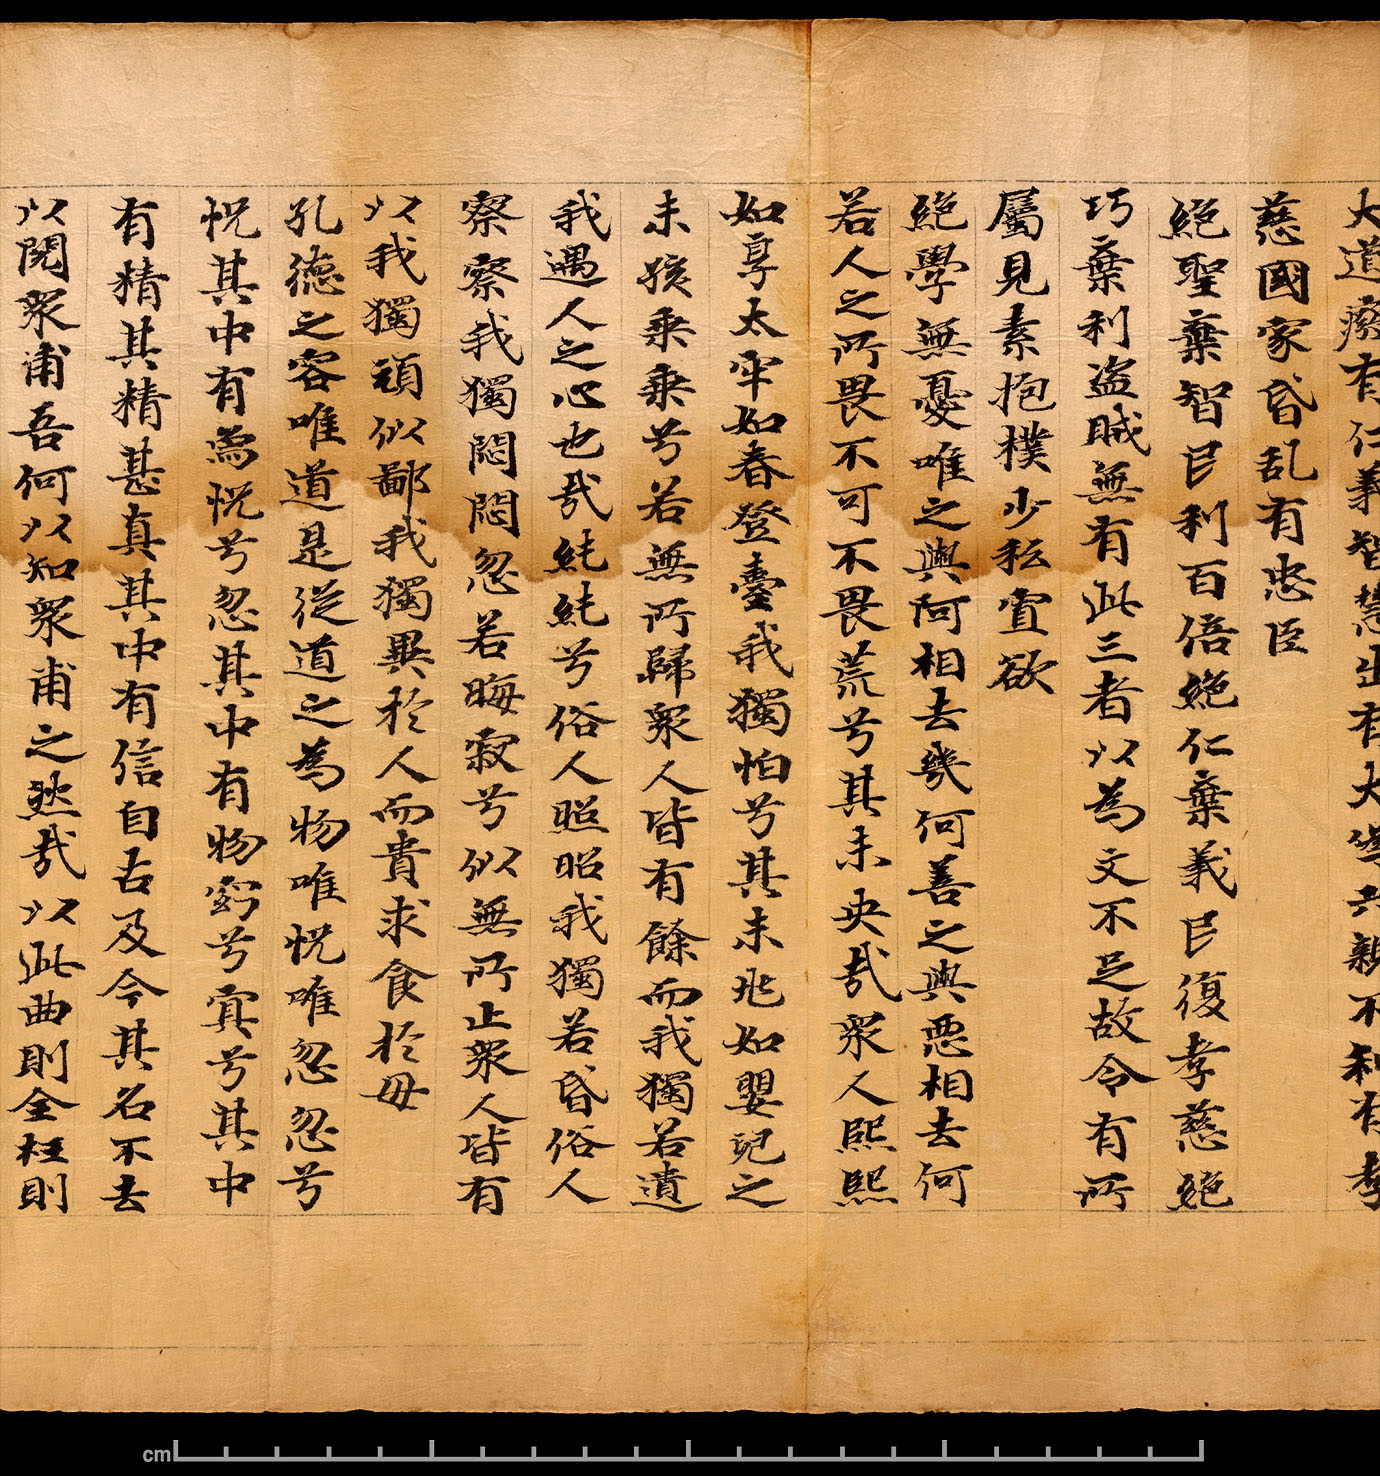 大道廢有仁義智慧出有大偽六親不和有孝
慈國家昏乱有忠臣
絕聖棄智民利百倍絕仁棄義民復孝慈絕
巧棄利盗賊無有此三者以為文不足故令有所
屬見素抱樸少私寡欲
絕學無憂唯之與阿相去幾何善之與惡相去何
若人之所畏不可不畏荒兮其未央哉眾人熙熙
如享太牢如春登臺我獨怕兮其未兆如嬰兒之
未孩乘乘兮若無所歸眾人皆有餘而我獨若遺
我遇人之心也哉純純兮俗人照昭我獨若昏俗人
察察我獨悶悶忽若晦寂兮似無所止眾人皆有
以我獨頑似鄙我獨異於人而貴求食於母
孔德之容唯道是從道之為物唯恍唯忽忽兮
恍其中有爲恍兮忽其中有物窈兮冥兮其中
有精其精甚真其中有信自古及今其名不去
以閱眾甫吾何以知眾甫之然哉以此曲則全枉則